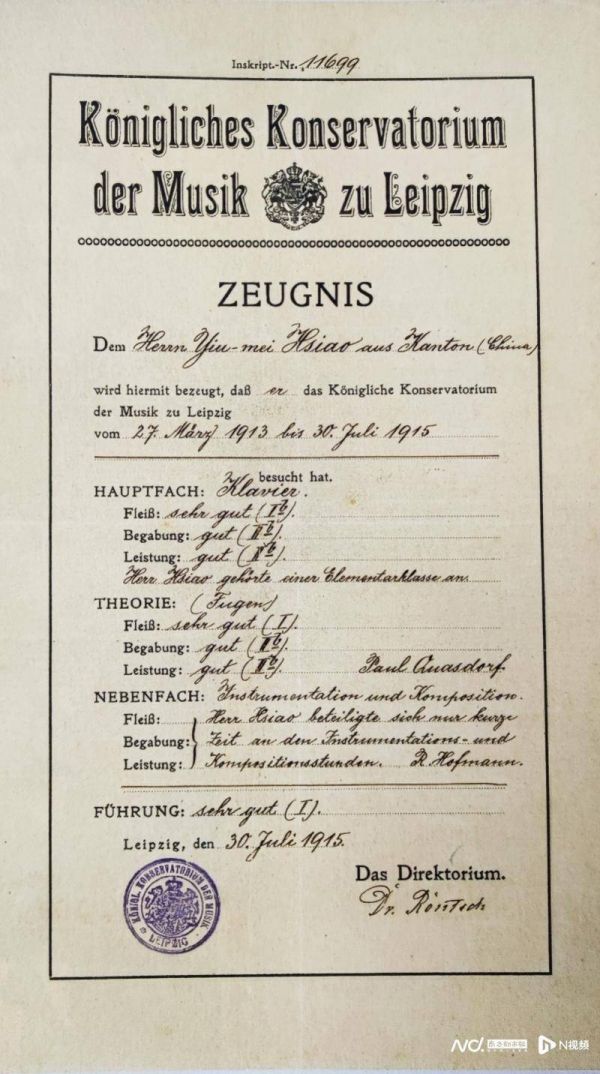 Inskript.-Nr. 11699
Königliches Konservatorium
der Musik zu Leipzig
ZEUGNIS
Dem Herrn Yiu-mei Hsiao aus Kanton (China)
wird hiermit bezeugt, daß er das Königliche Konservatorium
der Musik zu Leipzig
vom 27. März 1913 bis 30. Juli 1915
besucht hat.
HAUPTFACH: Klavier.
Fleiß: sehr gut (Ib).
Begabung: gut (IIb).
Leistung: gut (IIb).
Herr Hsiao gehörte einer Elementarklasse an.
THEORIE: (Fugen)
Fleiß: sehr gut (I).
Begabung: gut (IIb).
Leistung: gut (IIb). Paul Quasdorf
NEBENFACH: Instrumentation und Komposition.
Fleiß: Herr Hsiao beteiligte sich nur kurze
Begabung: Zeit an den Instrumentations- und
Leistung: Kompositionsstunden. R. Hofmann.
FÜHRUNG: sehr gut (I).
Leipzig, den 30. Juli 1915.
Das Direktorium.
Dr. Röntsch
KÖNIGL. KONSERVATORIUM DER MUSIK
LEIPZIG
N视频